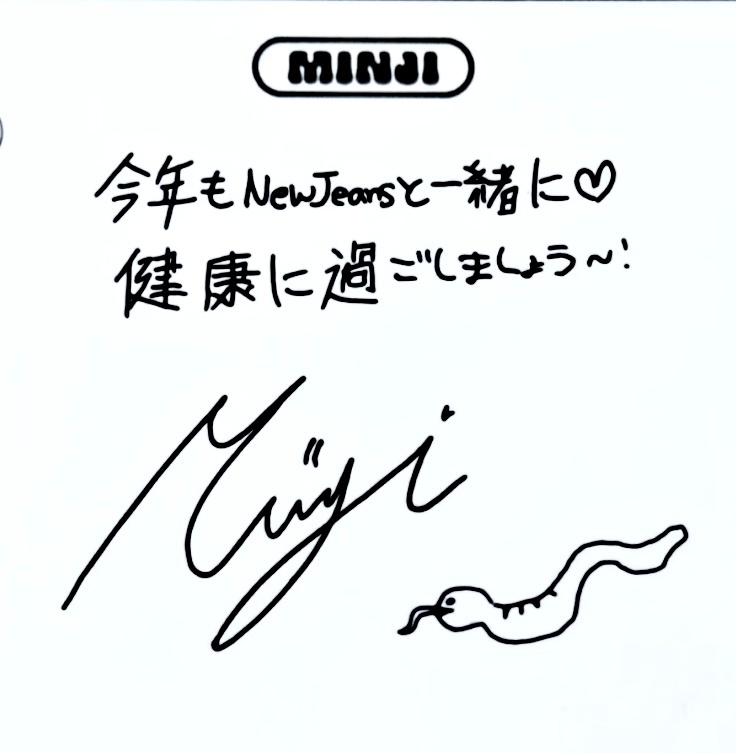 MINJI
今年もNewJeansと一緒に♡
健康に過ごしましょう〜!
Minji